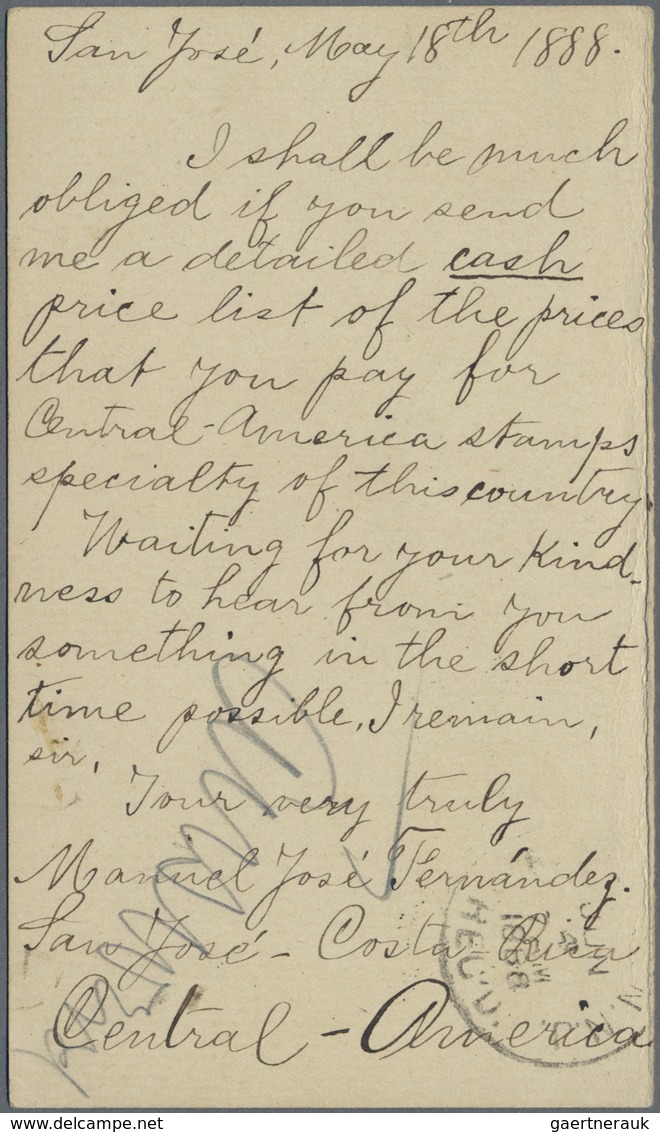 San José, May 18th 1888.
I shall be much
obliged if you send
me a detailed cash
price list of the prices
that you pay for
Central-America stamps
specialty of this country.
Waiting for your Kind-
ness to hear from you
something in the short
time possible, I remain,
sir,
Your very truly
Manuel José Fernández.
San José - Costa Rica
Central - America
REC'D.
1888
JUN
N.Y.
gaertnerauk